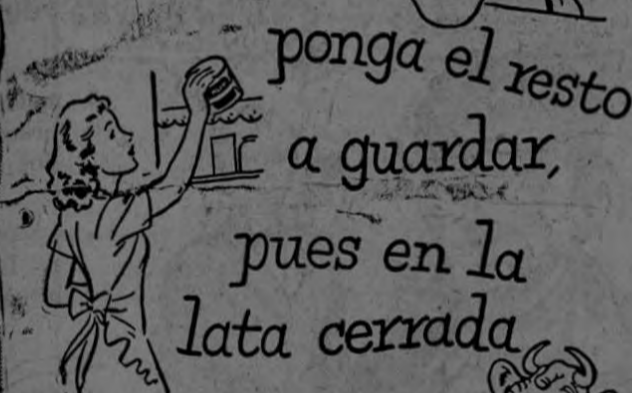 ponga el resto
a guardar,
pues en la
lata cerrada